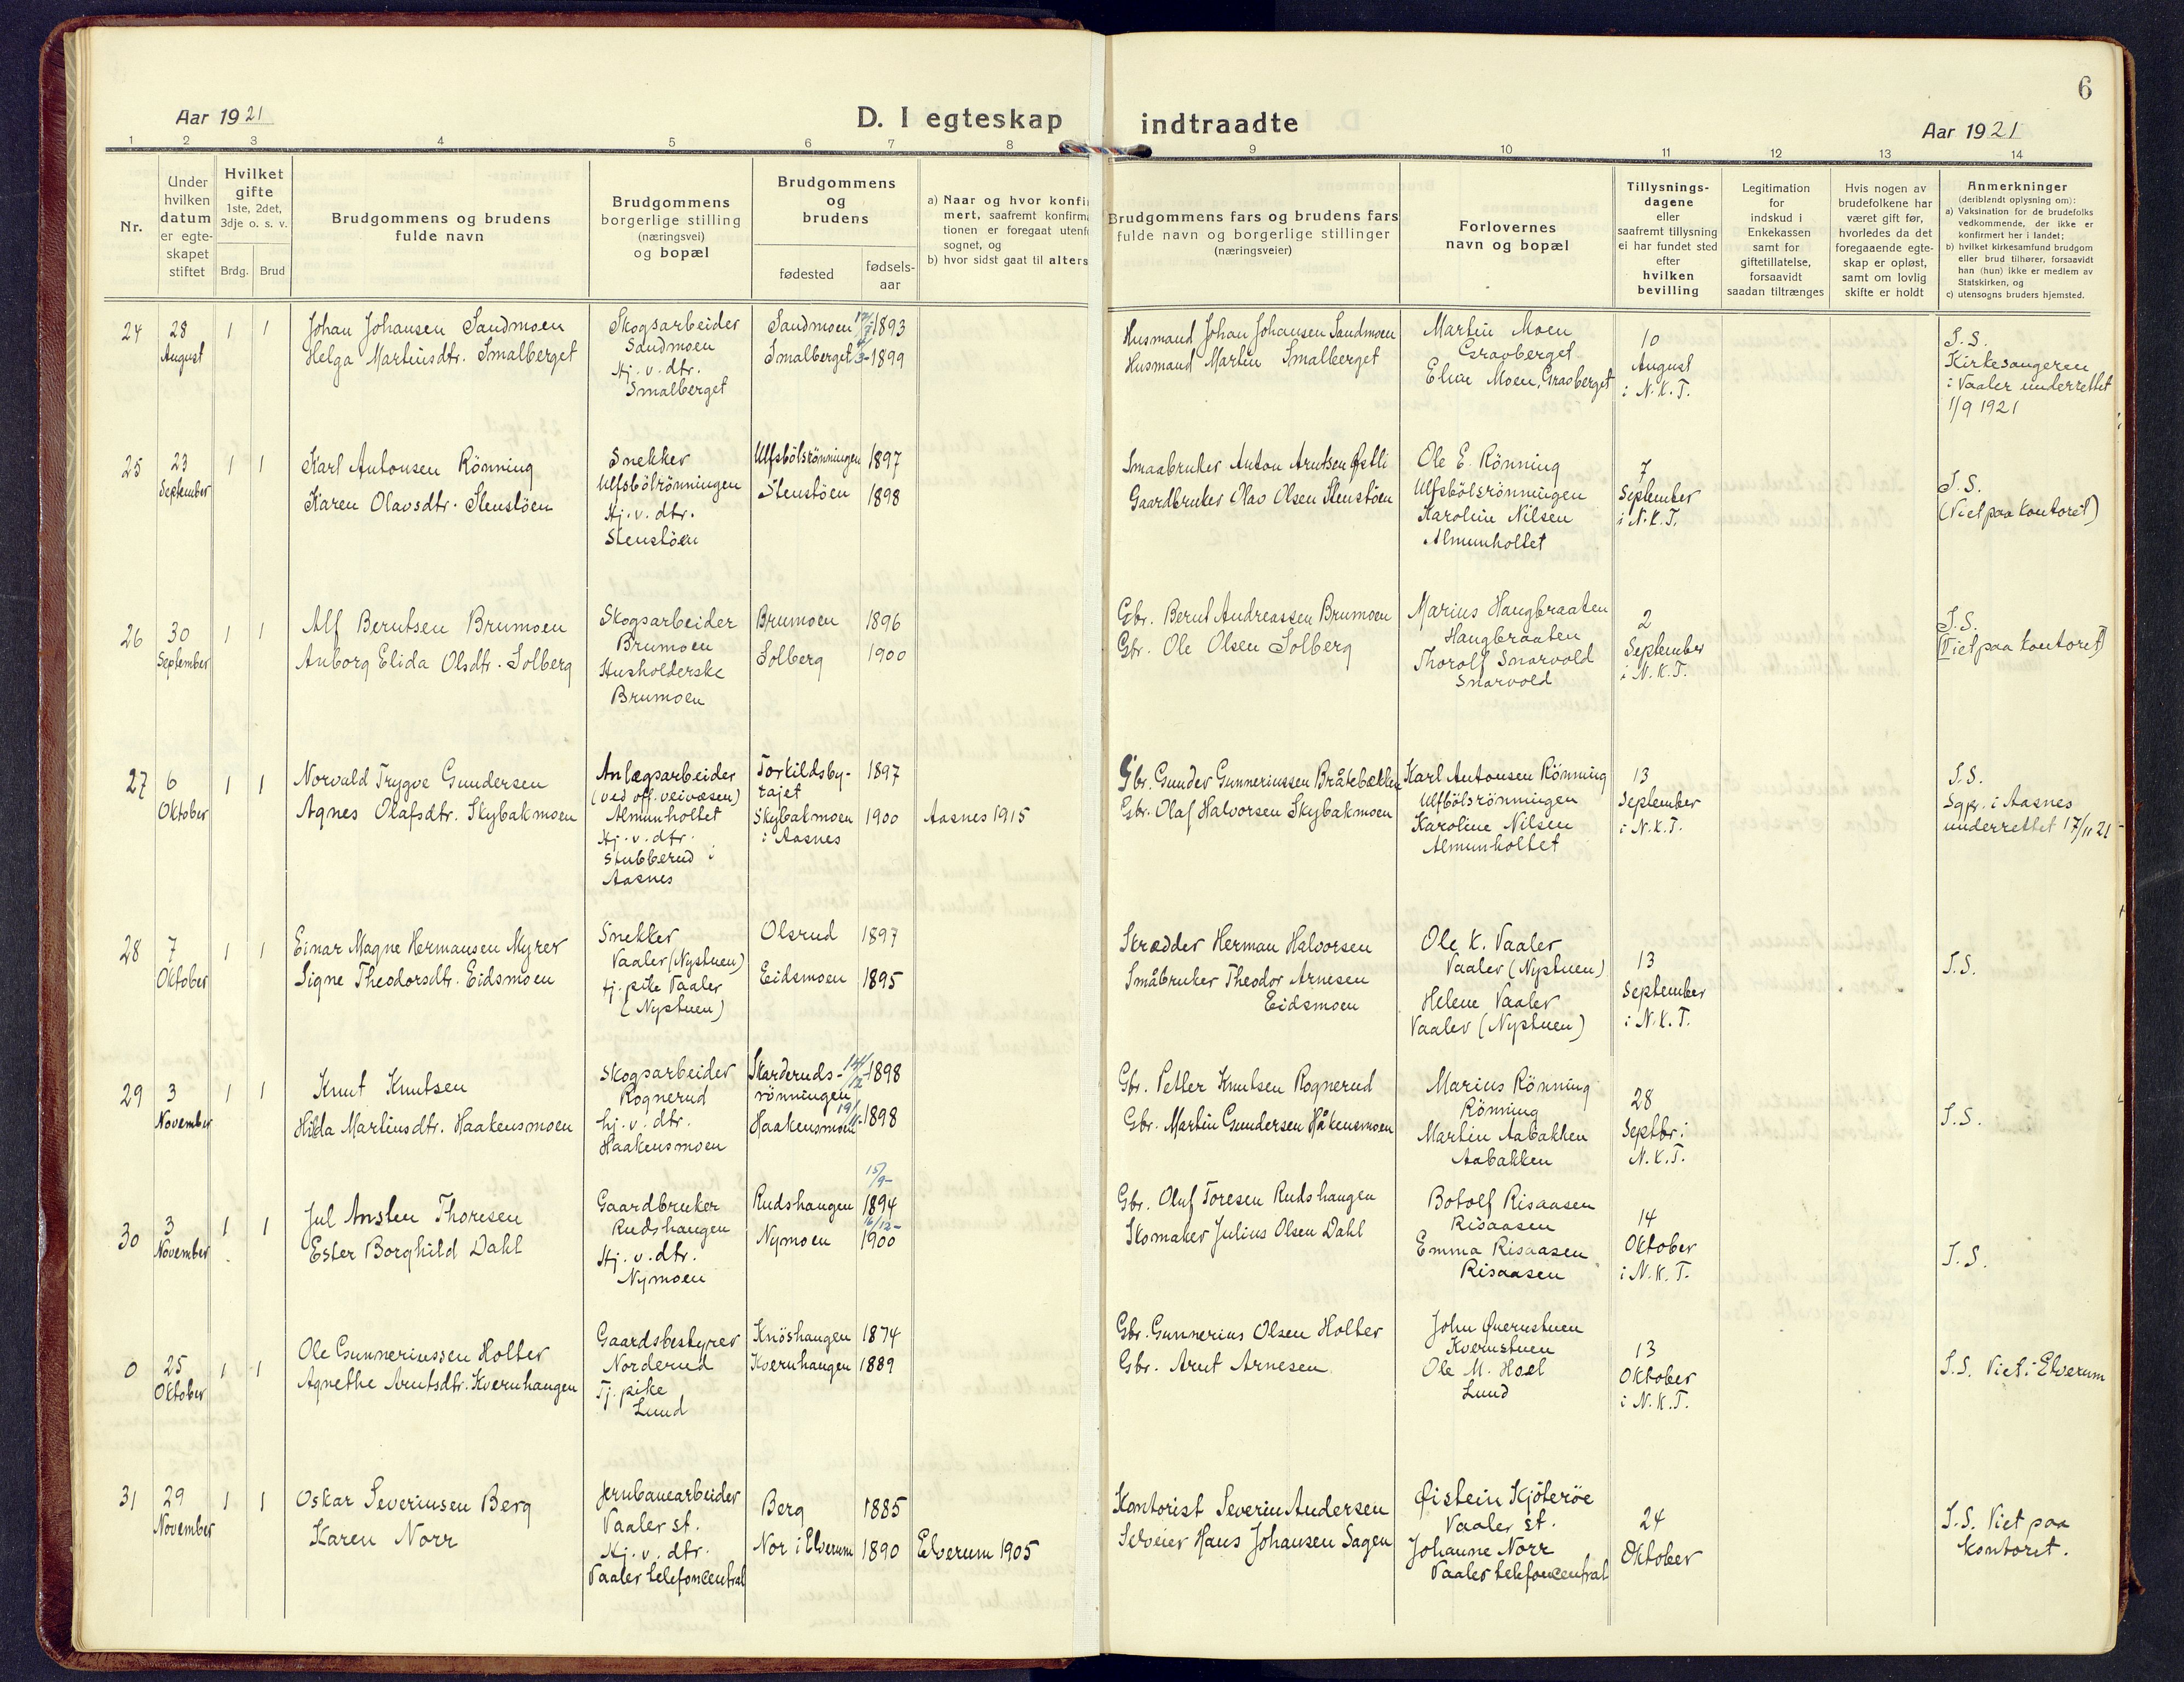 6
Aar 1921
D. I egteskap indtraadte
Aar 1921
1 2 3 4 5 6 7 8 9 10 11 12 13 14
Nr.
Under
hvilken
datum
er egte-
skapet
stiftet
Hvilket
gifte
1ste, 2det,
3dje o. s. v.
Brdg. Brud
Brudgommens og brudens
fulde navn
Brudgommens
borgerlige stilling
(næringsvei)
og bopæl
Brudgommens
og
brudens
fødested
fødsels-
aar
a) Naar og hvor konfi
mert, saafremt konfirma
tionen er foregaat utenf
sognet, og
b) hvor sidst gaat til alters
Brudgommens fars og brudens fars
fulde navn og borgerlige stillinger
(næringsveier)
Forlovernes
navn og bopæl
Tillysnings-
dagene
eller
saafremt tillysning
ei har fundet sted
efter
hvilken
bevilling
Legitimation
for
indskud i
Enkekassen
samt for
giftetillatelse,
forsaavidt
saadan tiltrænges
Hvis nogen av
brudefolkene har
været gift før,
hvorledes da det
foregaaende egte-
skap er opløst,
samt om lovlig
skifte er holdt
Anmerkninger
(deriblandt oplysning om):
a) Vaksination for de brudefolks
vedkommende, der ikke er
konfirmert her i landet;
b) hvilket kirkesamfund brudgom
eller brud tilhører, forsaavidt
han (hun) ikke er medlem av
Statskirken, og
c) utensogns bruders hjemsted.
24
28
August
1 1
Johan Johansen Sandmoen
Helga Martinsdtr. Smalberget
Skogsarbeider
Sandmoen
Hj. v. dtr.
Smalberget
Sandmoen 1893
Smalberget 1899
Husmand Johan Johansen Sandmoen
Husmand Martin Smalberget
Martin Moen
Gravberget
Elise Moen, Gravberget
10
August
i N.K.T.
I.S.
Kirkesangeren
i Vaaler underrettet
1/9 1921
25
23
September
1 1
Karl Antonsen Rönning
Karen Olavsdtr. Stenstöen
Snekker
Ulfsbölrönningen
Hj. v. dtr.
Stenstöen
Ulfsbölsrönningen 1897
Stenstöen 1898
Smaabruker Anton Arntsen Østli
Gaardbruker Olav Olsen Stenstöen
Ole E. Rönning
Ulfsbölsrönningen
Karoline Nilsen
Almunholtet
7
September
i N.K.T.
I.S.
(Viet paa kontoret)
26
30
September
1 1
Alf Berntsen Brumoen
Anborg Elida Olsdtr. Solberg
Skogsarbeider
Brumoen
Husholderske
Brumoen
Brumoen 1896
Solberg 1900
Gbr. Bernt Andreassen Brumoen
Gbr. Ole Olsen Solberg
Marius Haugbraaten
Haugbraaten
Thorolf Snarvold
Snarvold
2
September
i N.K.T.
I.S.
(Viet paa kontoret)
27
6
Oktober
1 1
Norvald Trygve Gundersen
Agnes Olafsdtr. Skybakmoen
Anlægsarbeider
(ved off. veivæsen)
Almunholtet
Hj. v. dtr.
Stubberud i
Aasnes
Torkildsby-
tajet 1897
Skybakmoen
i Aasnes 1900
Aasnes 1915
Gbr. Gunder Gunneriussen Bråtebækken
Gbr. Olaf Halvorsen Skybakmoen
Karl Antonsen Rönning
Ulfbölsrönningen
Karoline Nilsen
Almunholtet
13
September
i N.K.T.
I.S.
Sgpr. i Aasnes
underrettet 17/11 21
28
7
Oktober
1 1
Einar Magne Hermansen Myrer
Signe Theodorsdtr. Eidsmoen
Snekker
Vaaler (Nystuen)
tj. pike Vaaler
(Nystuen)
Olsrud 1897
Eidsmoen 1895
Skrædder Herman Halvorsen
Småbruker Theodor Arnesen
Eidsmoen
Ole K. Vaaler
Vaaler (Nystuen)
Helene Vaaler
Vaaler (Nystuen)
13
September
i N.K.T.
I.S.
29
3
November
1 1
Knut Knutsen
Hilda Martinsdtr. Haakensmoen
Skogsarbeider
Rognerud
hj. v. dtr.
Haakensmoen
Skarderuds-
rönningen 14/12 1898
Haakensmoen 1898
Gbr. Petter Knutsen Rognerud
Gbr. Martin Gundersen Håkensmoen
Marius Rönning
Rönning
Martin Aabakken
Aabakken
28
Septbr. i
N.K.T.
I.S.
30
3
November
1 1
Jul Ansten Thoresen
Ester Borghild Dahl
Gaardbruker
Rudshaugen
Hj. v. dtr.
Nymoen
Rudshaugen 15/9- 1894
Nymoen 16/12- 1900
Gbr. Oluf Toresen Rudshaugen
Skomaker Julius Olsen Dahl
Botolf Risaasen
Risaasen
Emma Risaasen
Risaasen
14
Oktober
i N.K.T.
I.S.
0
25
Oktober
1 1
Ole Gunneriussen Holter
Agnethe Arntsdtr. Kvernhaugen
Gaardsbestyrer
Norderud
Tj. pike
Lund
Knöshaugen 1874
Kvernhaugen 1889
Gbr. Gunnerius Olsen Holter
Gbr. Arnt Arnesen
John Qvernstuen
Kvernstuen
Ole M. Hoel
Lund
13
Oktober
i N.K.T.
I.S. Viet i Elverum
31
29
November
1 1
Oskar Severinsen Berg
Karen Norr
Jernbanearbeider
Vaaler st.
Hj. v. dtr.
Vaaler telefoncentral
Berg 1885
Nor i Elverum 1890
Elverum 1905
Kontorist Severin Andersen
Selveier Hans Johansen Sagen
Øistein Kjöteröe
Vaaler st.
Johanne Norr
Vaaler telefoncentral
24
Oktober
I.S. Viet paa
kontoret.